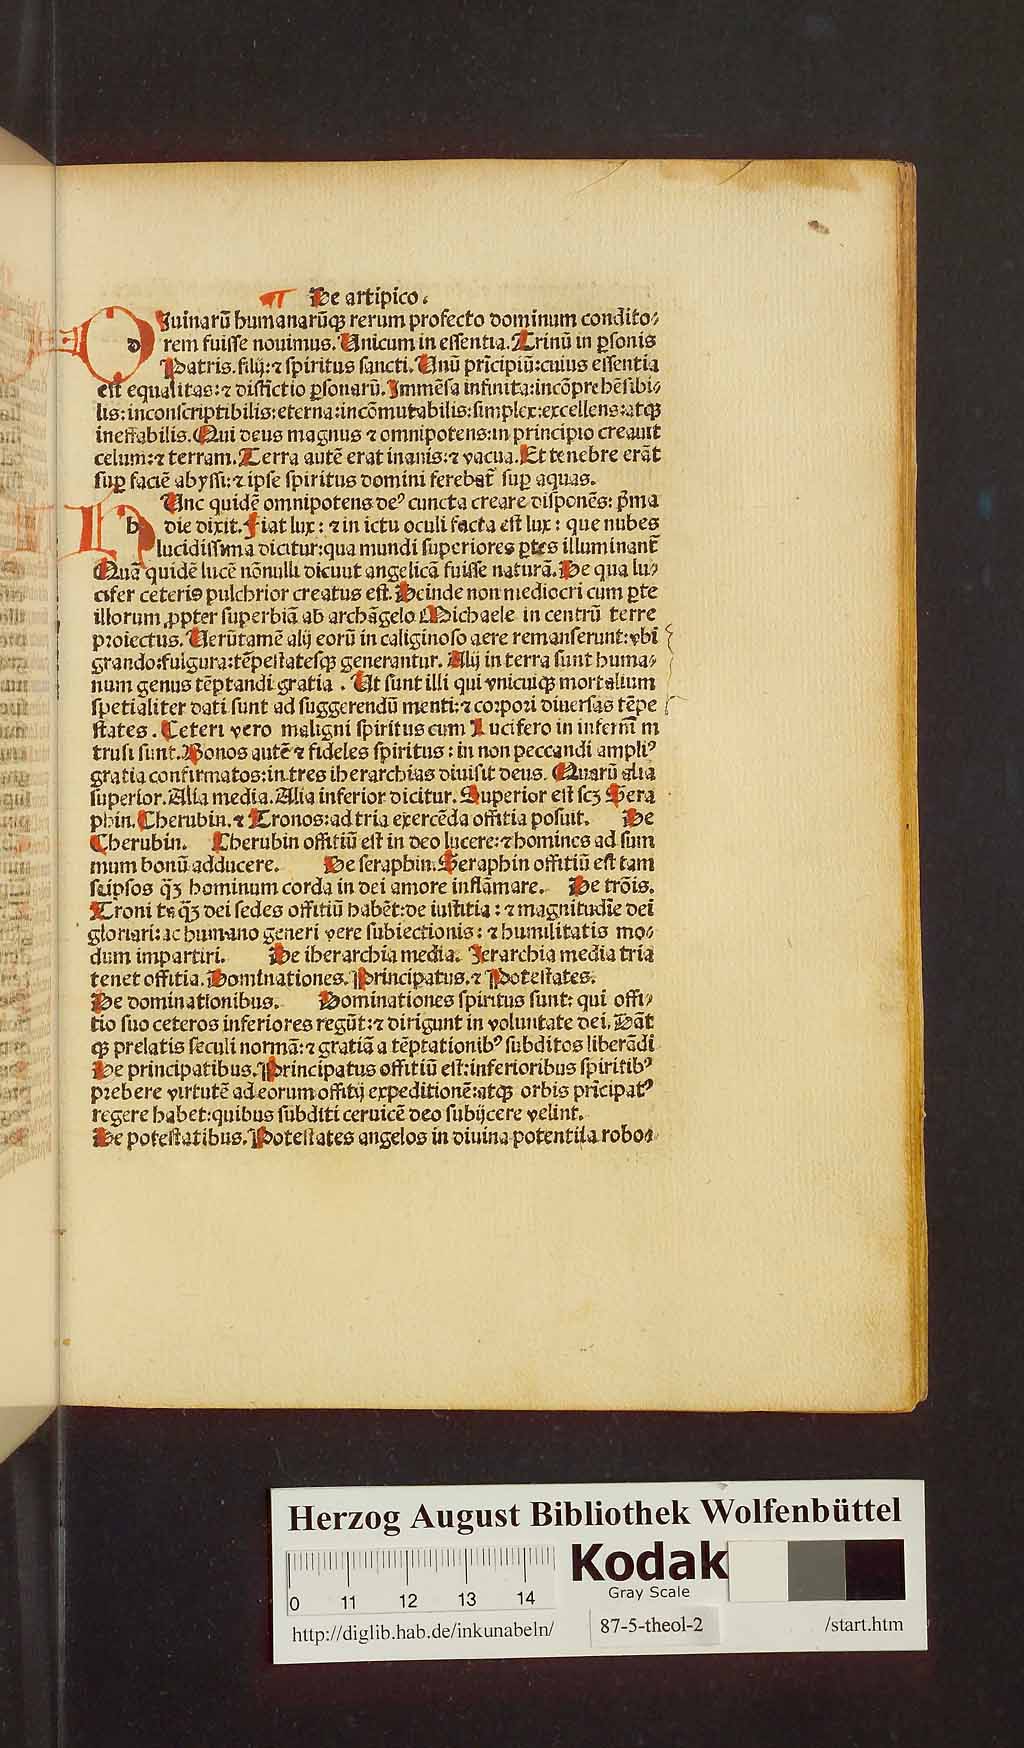 De artipico.
Diuinarū humanarūqꝫ rerum profecto dominum condito⸗
rem fuisse nouimus. Unicum in essentia. Trinū in ꝑsonis
Patris. filij: ⁊ spiritus sancti. Unū prīcipiū: cuius essentia
est equalitas: ⁊ distīctio ꝑsonarū. Immēsa infinita: incōprehēsibi⸗
lis: inconscriptibilis: eterna: incōmutabilis: simplex: excellens: atqꝫ
ineffabilis. Qui deus magnus ⁊ omnipotens: in principio creauit
celum: ⁊ terram. Terra autē erat inanis: ⁊ vacua. Et tenebre erāt
suꝑ faciē abyssi: ⁊ ipse spiritus domini ferebat̄ suꝑ aquas.
hUnc quidē omnipotens deꝰ cuncta creare disponēs: p̄ma
die dixit. Fiat lux: ⁊ in ictu oculi facta est lux: que nubes
lucidissima dicitur: qua mundi superiores ꝑtes illuminant̄
Quā quidē lucē nōnulli dicunt angelicā fuisse naturā. De qua lu⸗
cifer ceteris pulchrior creatus est. Deinde non mediocri cum ꝑte
illorum ꝓpter superbiā ab archāgelo Michaele in centrū terre
proiectus. Uerūtamē alij eorū in caliginoso aere remanserunt: vbi
grando: fulgura: tēpestatesqꝫ generantur. Alij in terra sunt huma⸗
num genus tēptandi gratia. Ut sunt illi qui vnicuiqꝫ mortalium
spetialiter dati sunt ad suggerendū menti: ⁊ corpori diuersas tēpe
states. Ceteri vero maligni spiritus cum Lucifero in infernū in
trusi sunt. Bonos autē ⁊ fideles spiritus: in non peccandi ampliꝰ
gratia confirmatos: in tres iherarchias diuisit deus. Quarū alia
superior. Alia media. Alia inferior dicitur. Superior est scꝫ Sera
phin. Cherubin. ⁊ Tronos: ad tria exercēda offitia posuit. De
Cherubin. Cherubin offitiū est in deo lucere: ⁊ homines ad sum
mum bonū adducere. De seraphin. Seraphin offitiū est tam
seipsos q̄ꝫ hominum corda in dei amore inflāmare. De trōis.
Troni tāq̄ꝫ dei sedes offitiū habēt: de iustitia: ⁊ magnitudīe dei
gloriari: ac humano generi vere subiectionis: ⁊ humilitatis mo⸗
dum impartiri. De iherarchia media. Ierarchia media tria
tenet offitia. Dominationes. Principatus. ⁊ Potestates.
De dominationibus. Dominationes spiritus sunt: qui offi⸗
tio suo ceteros inferiores regūt: ⁊ dirigunt in voluntate dei. Dāt
qꝫ prelatis seculi normā: ⁊ gratiā a tēptationibꝰ subditos liberādi
De principatibus. Principatus offitiū est: inferioribus spiritibꝰ
prebere virtutē ad eorum offitij expeditionē: atqꝫ orbis prīcipatꝰ
regere habet: quibus subditi ceruicē deo subijcere velint.
De potestatibus. Potestates angelos in diuina potentila robo⸗
Herzog August Bibliothek Wolfenbüttel
0 11 12 13 14
Kodak
Gray Scale
http://diglib.hab.de/inkunabeln/
87-5-theol-2
/start.htm